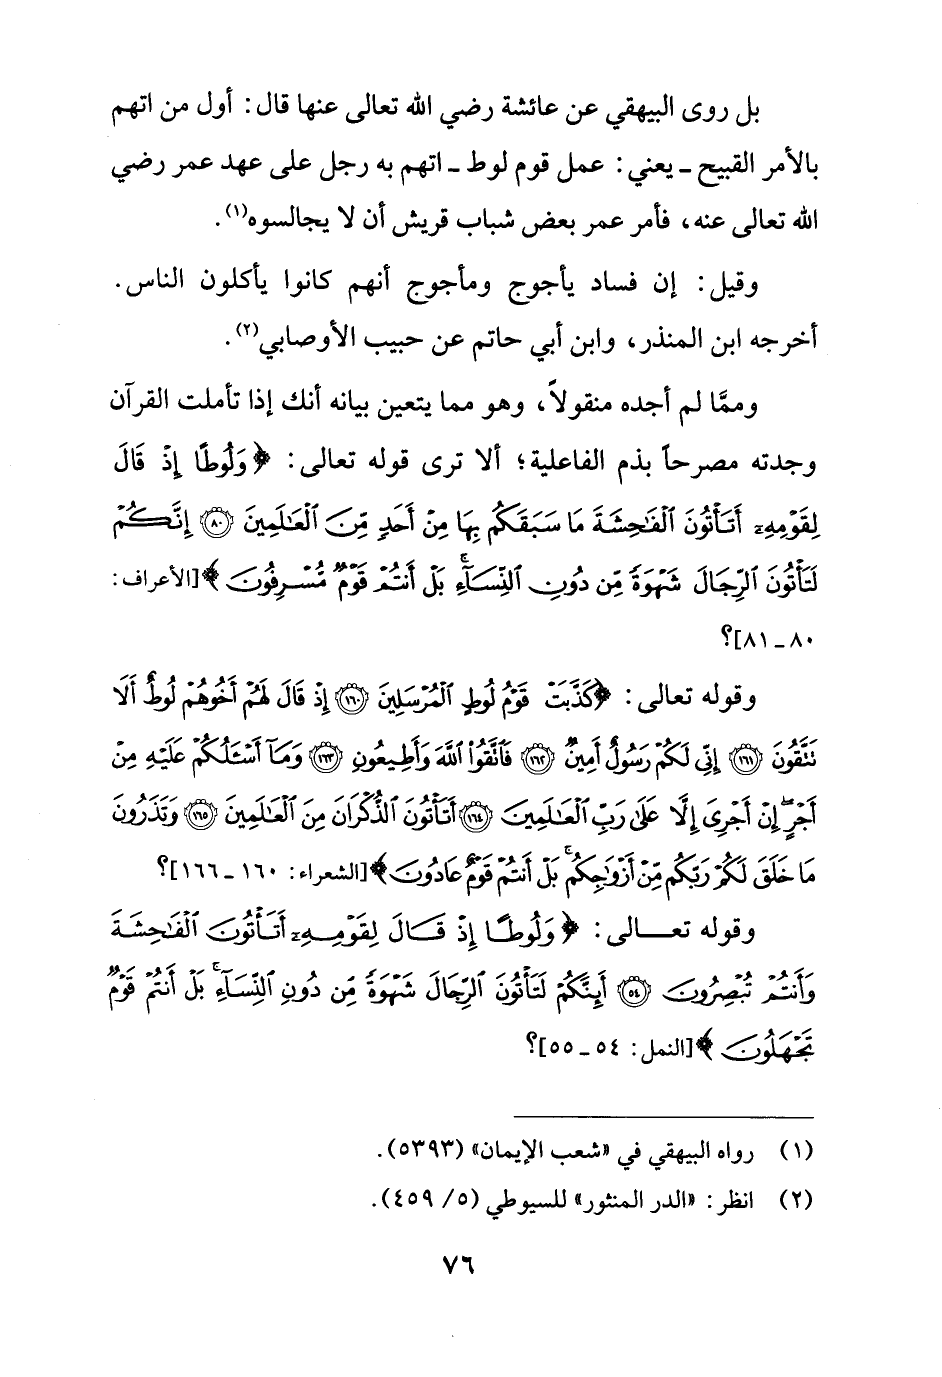 بل روى البيهقي عن عائشة رضي الله تعالى عنها قال: أول من اتهم
بالأمر القبيح ـ يعني: عمل قوم لوط ـ اتهم به رجل على عهد عمر رضي
الله تعالى عنه، فأمر عمر بعض شباب قريش أن لا يجالسوه(١).
وقيل: إن فساد يأجوج ومأجوج أنهم كانوا يأكلون الناس.
أخرجه ابن المنذر، وابن أبي حاتم عن حبيب الأوصابي(٢).
وممَّا لم أجده منقولاً، وهو مما يتعين بيانه أنك إذا تأملت القرآن
وجدته مصرحاً بذم الفاعلية؛ ألا ترى قوله تعالى: ﴿وَلُوطًا إِذْ قَالَ
لِقَوْمِهِۦٓ أَتَأْتُونَ ٱلْفَٰحِشَةَ مَا سَبَقَكُم بِهَا مِنْ أَحَدٍ مِّنَ ٱلْعَٰلَمِينَ ٨٠ إِنَّكُمْ
لَتَأْتُونَ ٱلرِّجَالَ شَهْوَةً مِّن دُونِ ٱلنِّسَآءِ ۚ بَلْ أَنتُمْ قَوْمٌ مُّسْرِفُونَ﴾ [الأعراف:
٨٠ ـ ٨١]؟
وقوله تعالى: ﴿كَذَّبَتْ قَوْمُ لُوطٍ ٱلْمُرْسَلِينَ ١٦٠ إِذْ قَالَ لَهُمْ أَخُوهُمْ لُوطٌ أَلَا
تَتَّقُونَ ١٦١ إِنِّي لَكُمْ رَسُولٌ أَمِينٌ ١٦٢ فَٱتَّقُوا۟ ٱللَّهَ وَأَطِيعُونِ ١٦٣ وَمَآ أَسْـَٔلُكُمْ عَلَيْهِ مِنْ
أَجْرٍ ۖ إِنْ أَجْرِىَ إِلَّا عَلَىٰ رَبِّ ٱلْعَٰلَمِينَ ١٦٤ أَتَأْتُونَ ٱلذُّكْرَانَ مِنَ ٱلْعَٰلَمِينَ ١٦٥ وَتَذَرُونَ
مَا خَلَقَ لَكُمْ رَبُّكُم مِّنْ أَزْوَٰجِكُم ۚ بَلْ أَنتُمْ قَوْمٌ عَادُونَ﴾ [الشعراء: ١٦٠ ـ ١٦٦]؟
وقوله تعـــالى: ﴿وَلُوطًا إِذْ قَالَ لِقَوْمِهِۦٓ أَتَأْتُونَ ٱلْفَٰحِشَةَ
وَأَنتُمْ تُبْصِرُونَ ٥٤ أَئِنَّكُمْ لَتَأْتُونَ ٱلرِّجَالَ شَهْوَةً مِّن دُونِ ٱلنِّسَآءِ ۚ بَلْ أَنتُمْ قَوْمٌ
تَجْهَلُونَ﴾ [النمل: ٥٤ ـ ٥٥]؟
(١) رواه البيهقي في «شعب الإيمان» (٥٣٩٣).
(٢) انظر: «الدر المنثور» للسيوطي (٥/ ٤٥٩).
٧٦